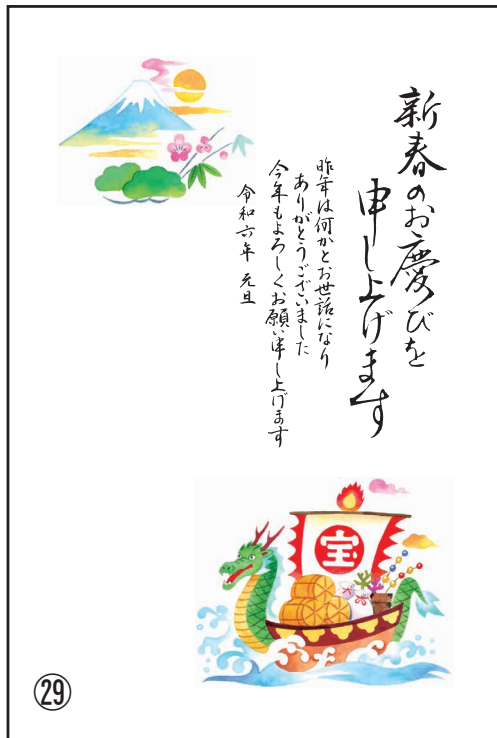 新春のお慶びを
申し上げます
昨年は何かとお世話になり
ありがとうございました
今年もよろしくお願い申し上げます
令和六年 元旦
宝
㉙